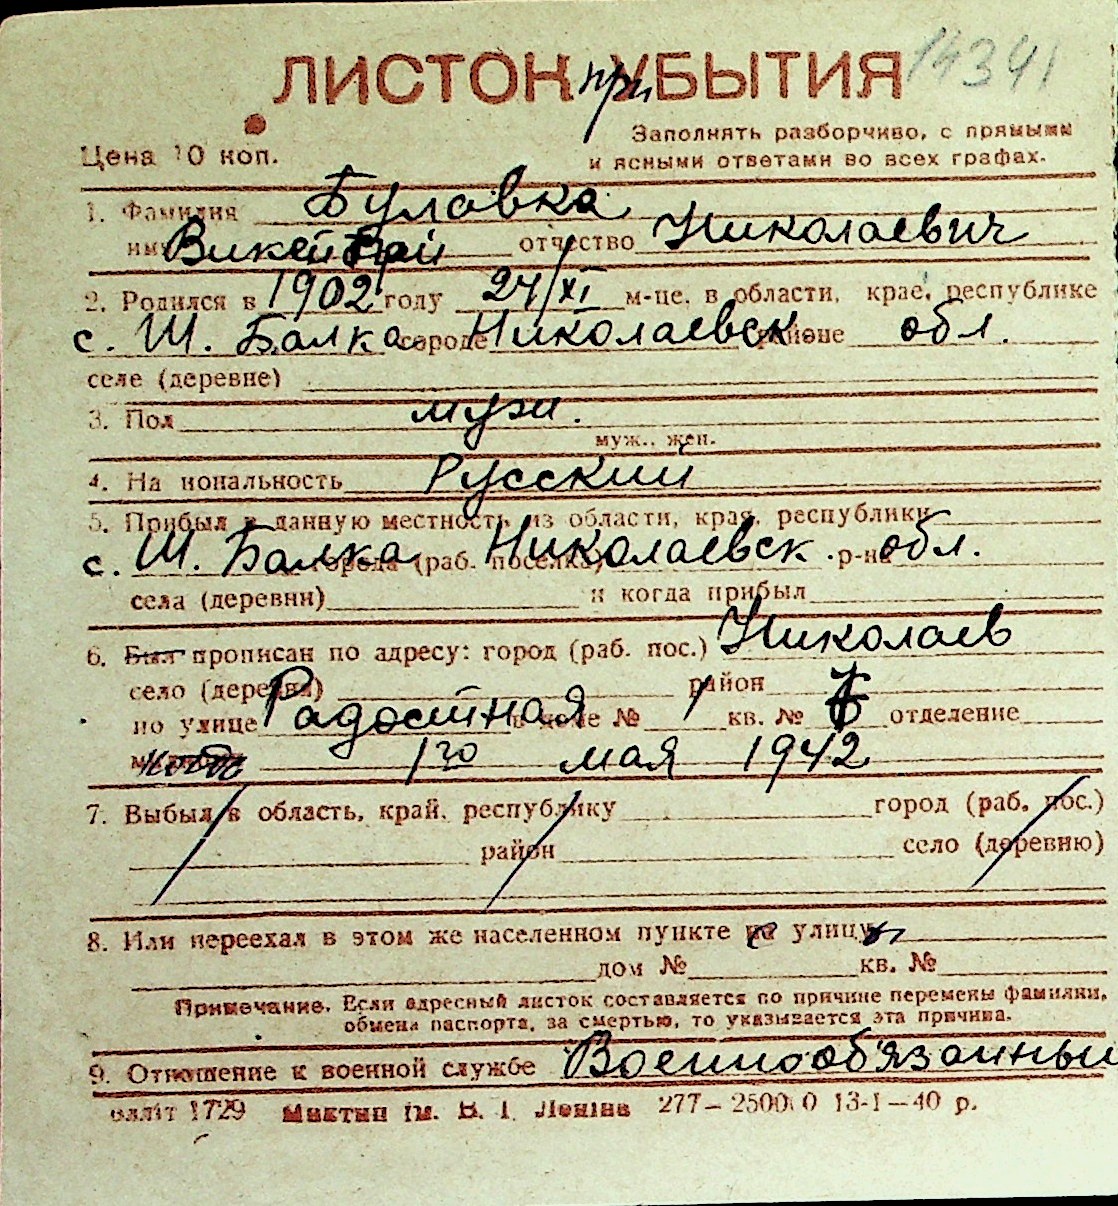 14341
ЛИСТОК при УБЫТИЯ
Цена 10 коп.
Заполнять разборчиво, с прямыми
и ясными ответами во всех графах.
1. Фамилия Булавка
имя отчество Николаевич
2. Родился в 1902 году 24/XI м-це, в области, крае, республике
с. Ш. Балка городе Николаевск районе обл.
селе (деревне)
3. Пол муж.
муж., жен.
4. На иональность Русский
5. Прибыл в данную местность из области, края, республики
с. Ш. Балка города (раб. поселка) Николаевск. р-на обл.
села (деревни) и когда прибыл
6. Был прописан по адресу: город (раб. пос.) Николаев
село (деревня) район
по улице Радостная в доме № 1 кв. № отделение
1го мая 1942
7. Выбыл в область, край, республику город (раб. пос.)
район село (деревню)
8. Или переехал в этом же населенном пункте на улицу
дом № кв. №
Примечание. Если адресный листок составляется по причине перемены фамилии,
обмена паспорта, за смертью, то указывается эта причина.
9. Отношение к военной службе Военнообязанный
1729 Леніна 277—2500 0 13-I—40 р.